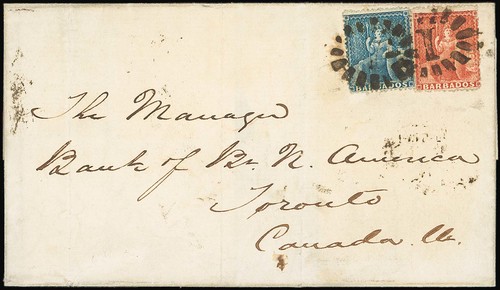 BARBADOS
BARBADOS
1
The Manager
Bank of Br. N. America
Toronto
Canada